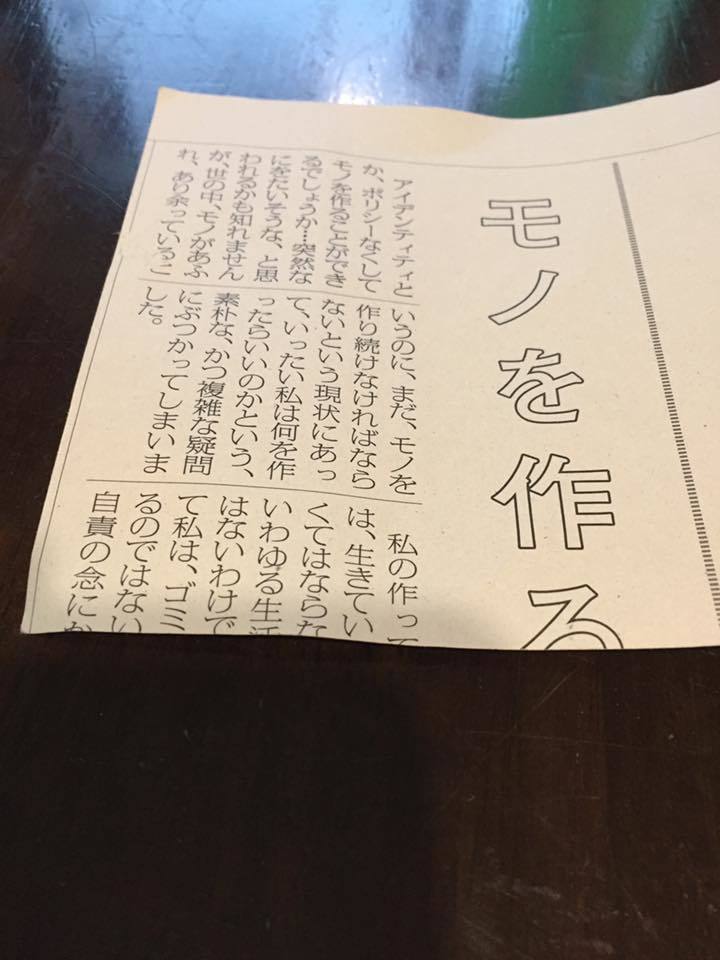 モノを作る
アイデンティティと
か、ポリシーなくして
モノを作ることができ
るでしょうか…突然な
にをたいそうな、と思
われるかも知れません
が、世の中、モノがあふ
れ、あり余っているこ
いうのに、まだ、モノを
作り続けなければなら
ないという現状にあっ
て、いったい私は何を作
ったらいいのかという、
素朴な、かつ複雑な疑問
にぶつかってしまいま
した。
私の作って
は、生きてい
くてはならな
いわゆる生活
はないわけで
て私は、ゴミ
るのではない
自責の念にか